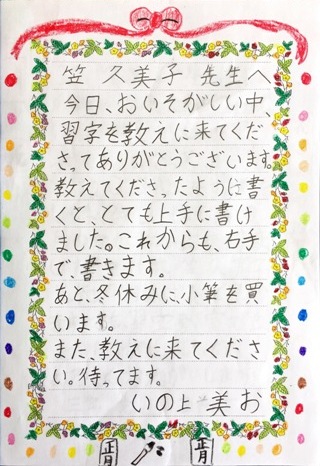 笠 久美子 先生へ
今日、おいそがしい中
習字を教えに来てくだ
さってありがとうございます。
教えてくださったように書
くと、とても上手に書け
ました。これからも、右手
で、書きます。
あと、冬休みに、小筆を買
います。
また、教えに来てくださ
い。待ってます。
いの上 美お
正月
正月